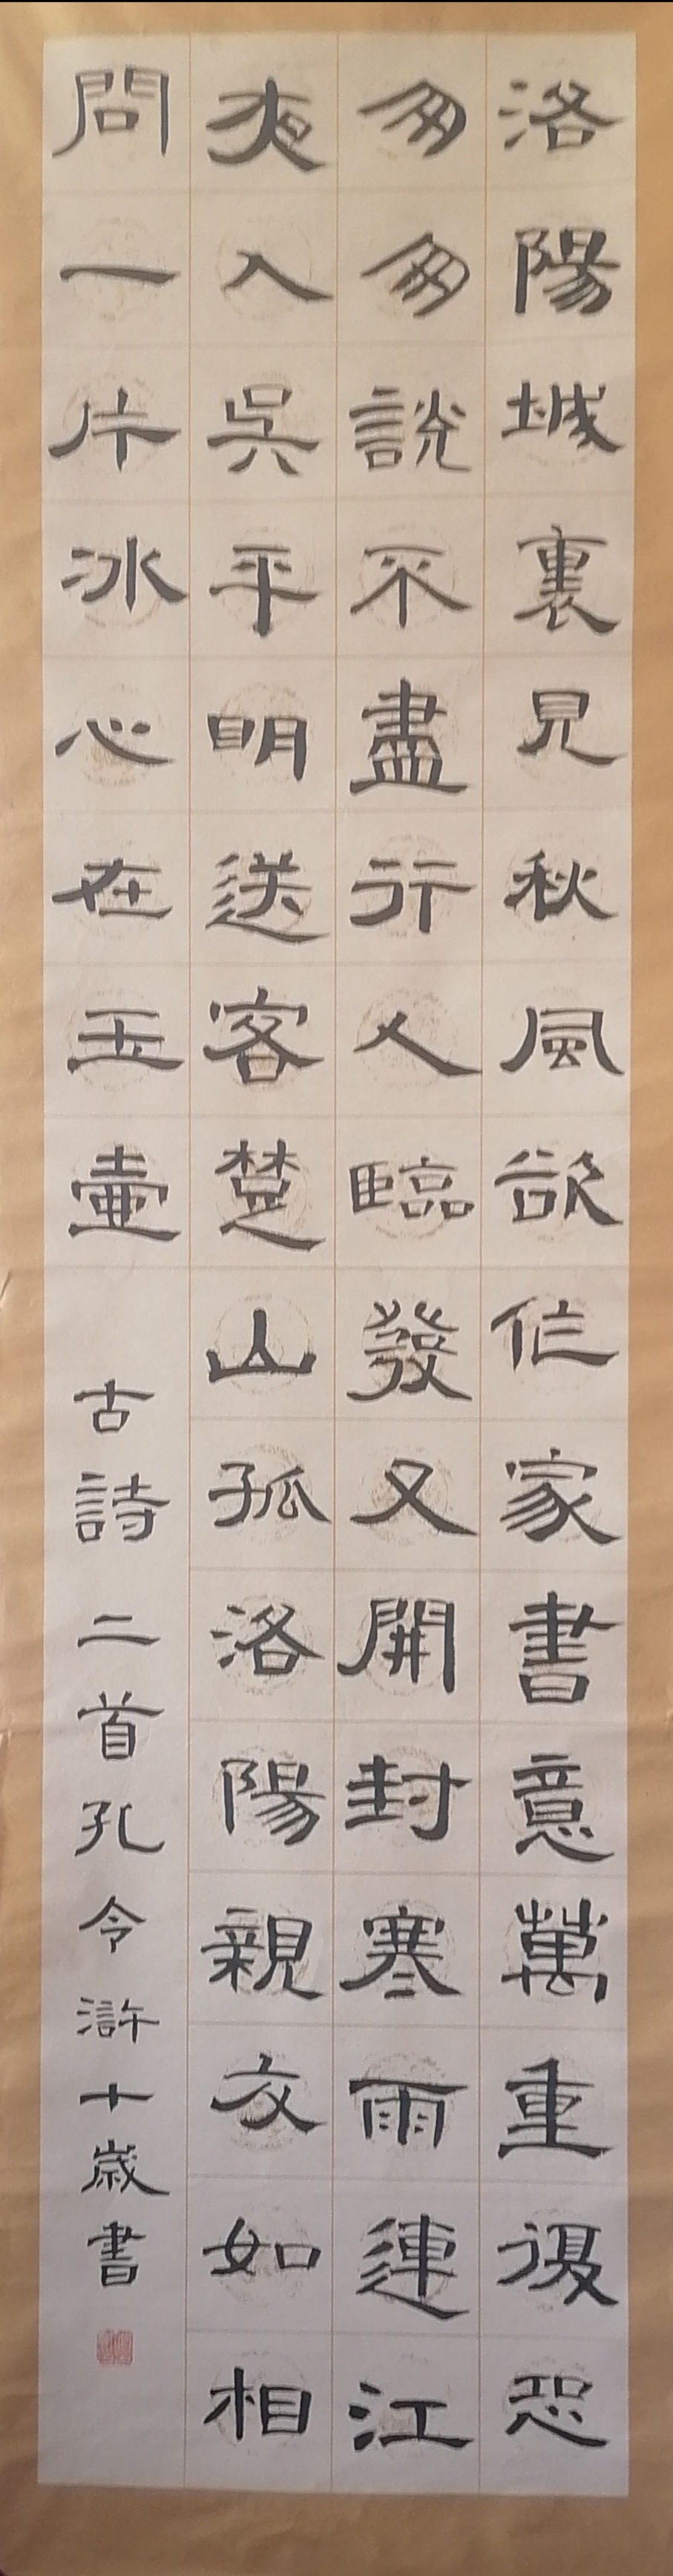 洛陽城裏見秋風欲作家書意萬重復恐
匆匆說不盡行人臨發又開封寒雨連江
夜入吳平明送客楚山孤洛陽親友如相
問一片冰心在玉壺 古詩二首孔令滸十歲書